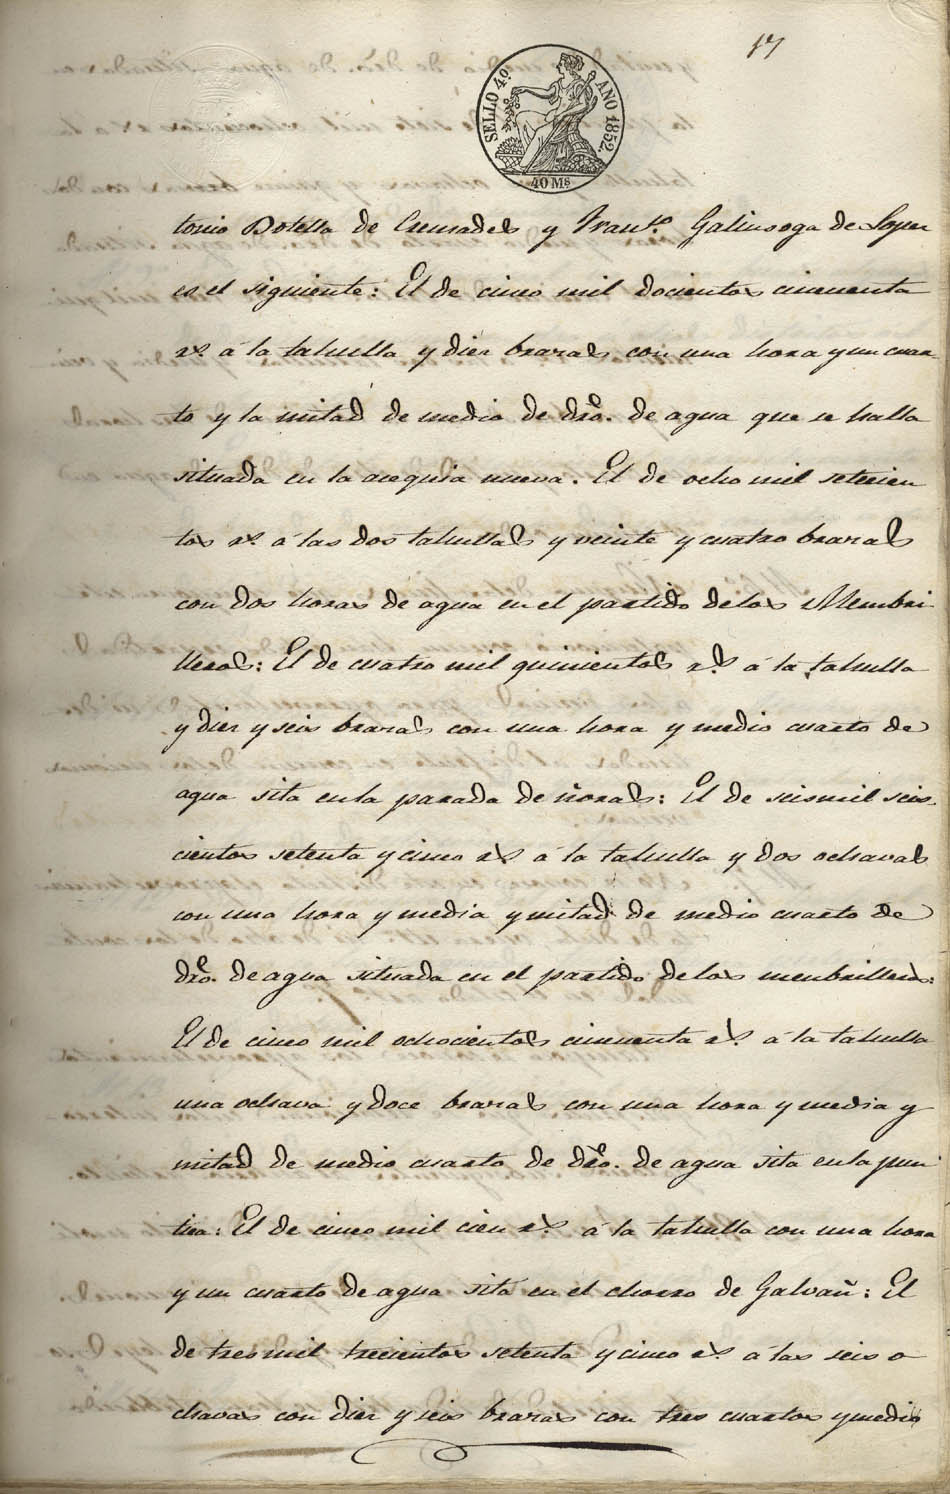 17
SELLO 4º. AÑO 1852.
40 Ms
tonio Botella de Cremades y Franco. Galinsoga de Lopez
es el siguiente: El de cinco mil docientos cincuenta
rs. á la tahulla y diez brazas con una hora y un cuar-
to y la mitad de medio de dro. de agua que se halla
situada en la acequia nueva. El de ocho mil setecien
tos rs. á las dos tahullas y veinte y cuatro brazas
con dos horas de agua en el partido de los Membri-
lleros: El de cuatro mil quinientos rs. á la tahulla
y diez y seis brazas con una hora y medio cuarto de
agua sita en la parada de ñoras: El de seismil seis-
cientos setenta y cinco rs á la tahulla y dos ochavas
con una hora y media y mitad de medio cuarto de
dro. de agua situada en el partido de los menbrilleros:
El de cinco mil ochocientos cincuenta rs. á la tahulla
una ochava y doce brazas con una hora y media y
mitad de medio cuarto de dro. de agua sita en la pun
tica: El de cinco mil cien rs. á la tahulla con una hora
y un cuarto de agua sita en el chorro de Galvañ: El
de tresmil trecientos setenta y cinco rs. á las seis o
chavas con diez y seis brazas con tres cuartos y medio